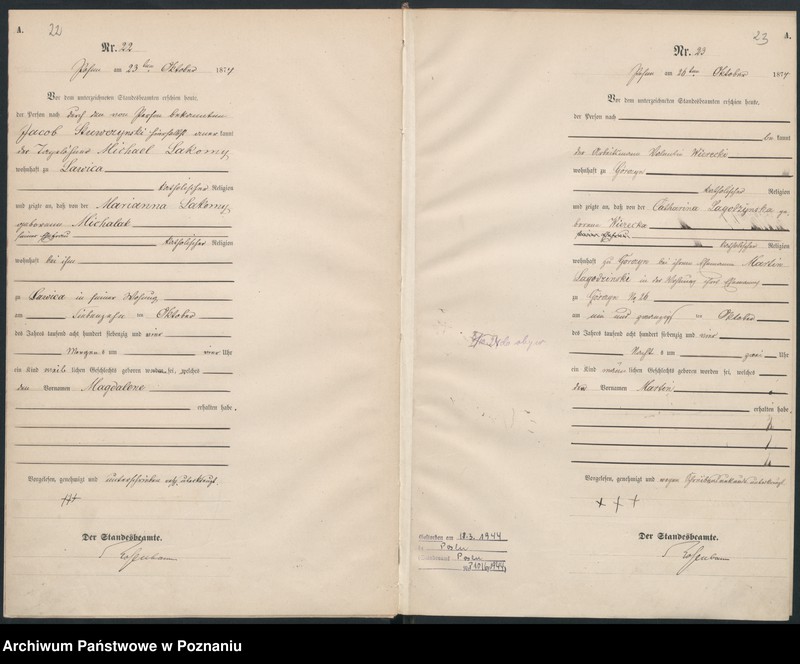 A.
22
Nr. 22
am 23 ten Oktober 1874
Vor dem unterzeichneten Standesbeamten erschien heute,
der Person nach
Jacob
kannt
der Tagelöhner Michael Lakomy
wohnhaft zu Lawica
katholischer Religion
und zeigte an, daß von der Marianna Lakomy
geborene Michalak
katholischer Religion
wohnhaft bei ihm
zu Lawica in seiner Wohnung
am siebenzehn ten Oktober
des Jahres tausend acht hundert siebenzig und vier
Morgens um vier Uhr
ein Kind weib lichen Geschlechts geboren worden sei, welches
den Vornamen Magdalene
erhalten habe.
Vorgelesen, genehmigt und
+++
Der Standesbeamte.
Rosenbaum
18.3. 1944
Posen
Posen
23
A.
Nr. 23
am 26 ten Oktober 1874
Vor dem unterzeichneten Standesbeamten erschien heute,
der Person nach
be kannt
der Arbeitsmann Valentin Wierecki
wohnhaft zu Gorczyn
katholischer Religion
und zeigte an, daß von der Catharina Zagodzynska ge-
borene Wierecka
katholischer Religion
wohnhaft zu Gorczyn bei ihrem Ehemann Martin
in der Wohnung ihres Ehemanns
zu Gorczyn No 26
am ein und zwanzigsten Oktober
des Jahres tausend acht hundert siebenzig und vier
Nachts um zwei Uhr
ein Kind männ lichen Geschlechts geboren worden sei, welches
den Vornamen Martin
erhalten habe.
Vorgelesen, genehmigt und wegen
+ + +
Der Standesbeamte.
Rosenbaum
Archiwum Państwowe w Poznaniu